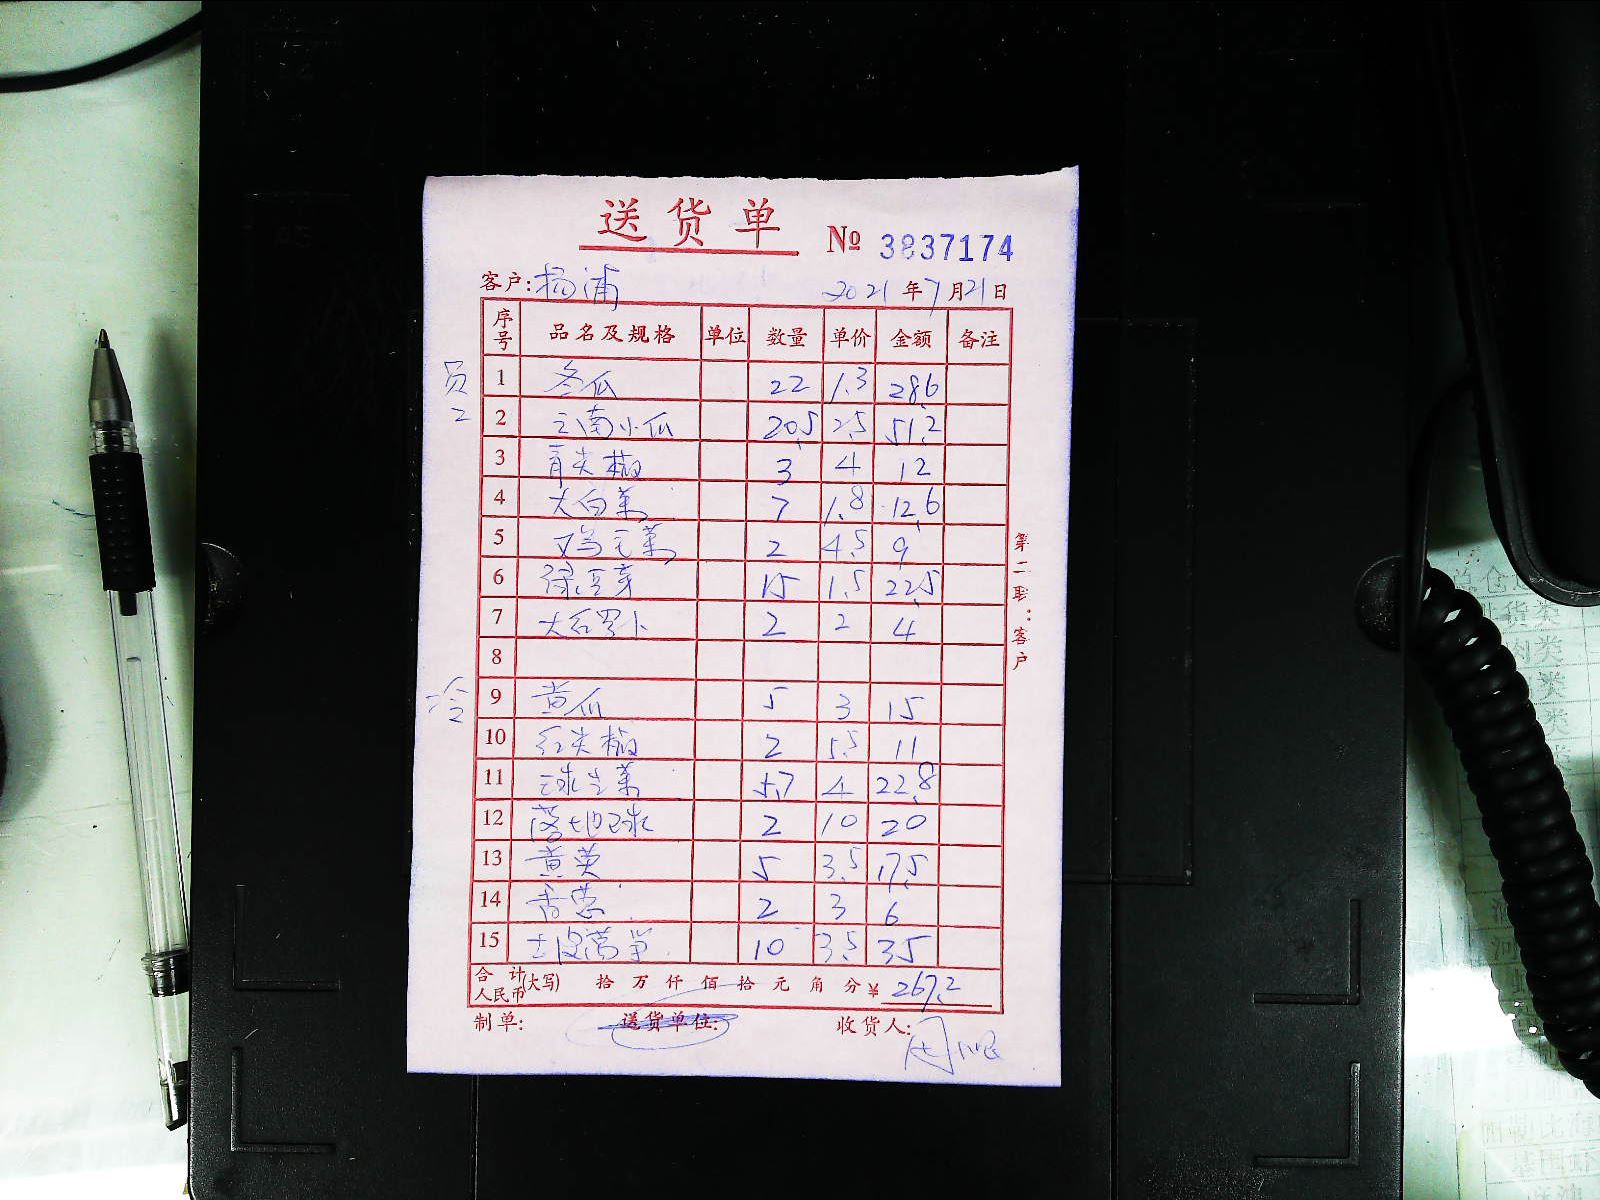 送货单
№ 3837174
客户: 杨浦 2021年7月21日
序号 品名及规格 单位 数量 单价 金额 备注
员工
1 冬瓜 22 1.3 28.6
2 云南小瓜 20.5 2.5 51.2
3 青尖椒 3 4 12
4 大白菜 7 1.8 12.6
5 鸡毛菜 2 4.5 9
6 绿豆芽 15 1.5 22.5
7 大红罗卜 2 2 4
8
冷
9 黄瓜 5 3 15
10 红尖椒 2 5.5 11
11 球生菜 5.7 4 22.8
12 落地球 2 10 20
13 黄英 5 3.5 17.5
14 香葱 2 3 6
15 土皮莴笋 10 3.5 35
合计人民币(大写) 拾 万 仟 佰 拾 元 角 分 ¥ 267.2
制单: 送货单位: 收货人:
第二联:客户